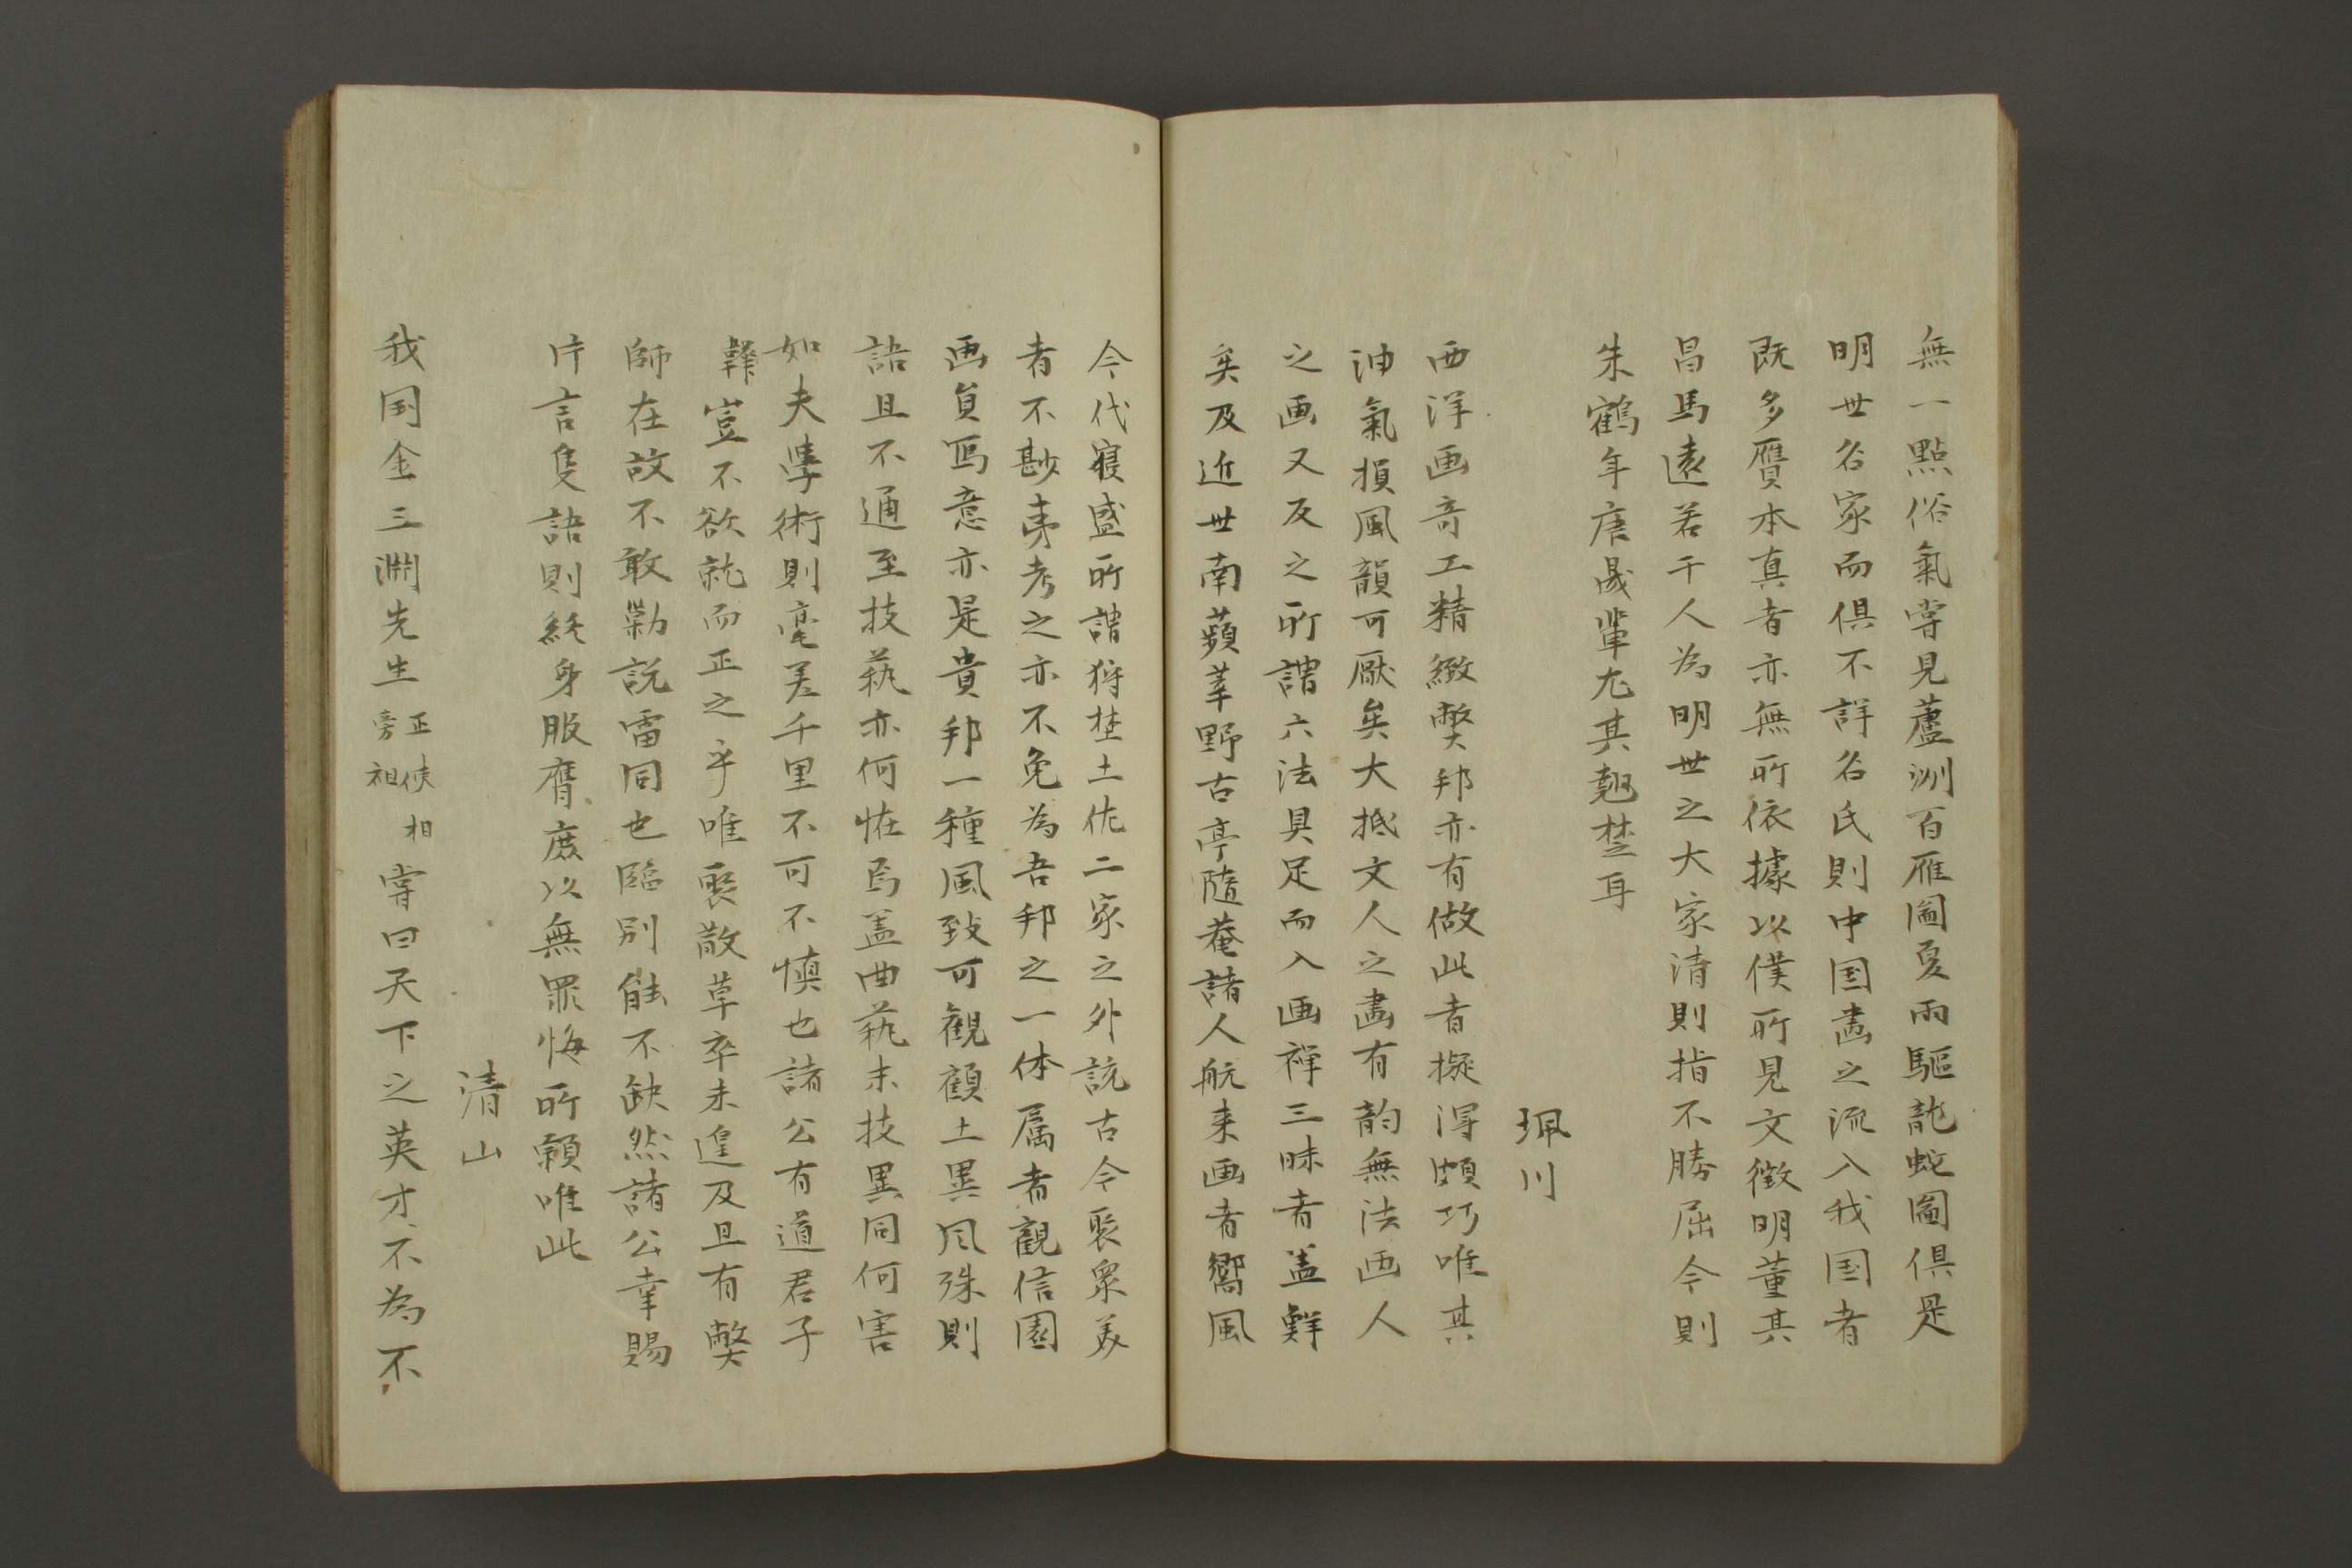 無一點俗氣嘗見蘆洲百雁圖夏雨驅龍蛇圖俱是
明世名家而俱不詳名氏則中国畵之流入我国者
既多贋本真者亦無所依據以僕所見文徵明董其
昌馬遠若干人為明世之大家清則指不勝屈今則
朱鶴年唐晟輩尤其翹楚耳
珮川
西洋画奇工精緻弊邦亦有做此者擬得頗巧唯其
油氣損風韻可厭矣大抵文人之畵有韵無法画人
之画又反之所謂六法具足而入画禅三昧者盖鮮
矣及近世南蘋莘野古亭隨菴諸人航来画者嚮風
今代寝盛所謂狩埜土佐二家之外説古今聚衆美
者不尠夷考之亦不免為吾邦之一体属者觀信園
画貟寫意亦是貴邦一種風致可観顧土異风殊則
語且不通至技藝亦何恠焉盖曲藝末技異同何害
如夫學術則毫差千里不可不慎也諸公有道君子
豈不欲就而正之乎唯褧散草卒未遑及且有弊
師在故不敢勦説雷同也臨别能不缺然諸公幸賜
片言隻語則終身服膺庶以無罪悔所願唯此
清山
我国金三淵先生正使相旁祖嘗曰天下之英才不為不